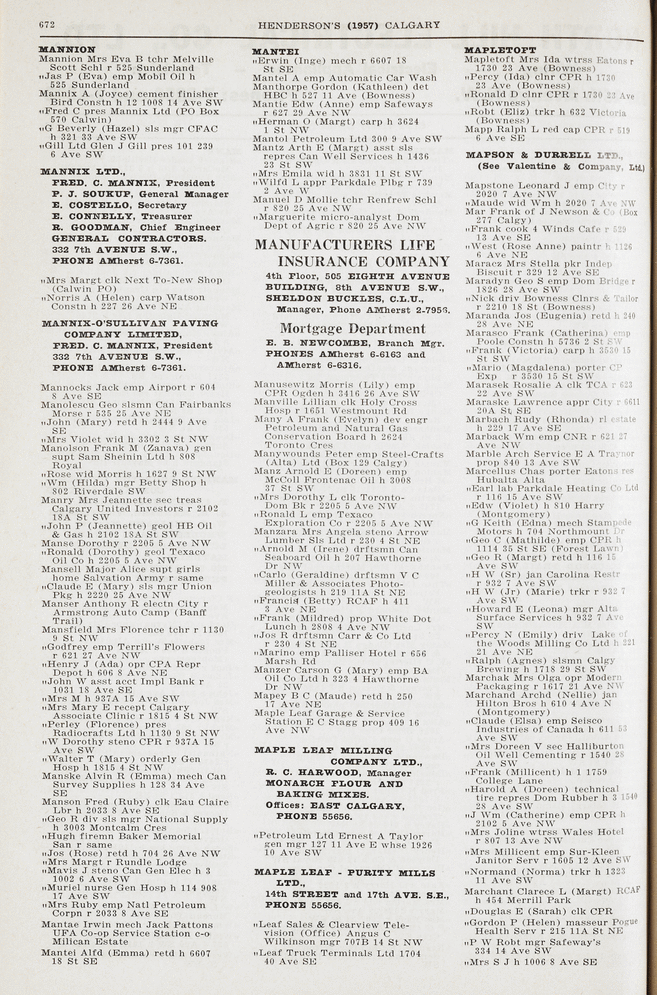 672
HENDERSON'S (1957) CALGARY
MANNION
Mannion Mrs Eva B tchr Melville
Scott Schl r 525 Sunderland
„Jas P (Eva) emp Mobil Oil h
525 Sunderland
Mannix A (Joyce) cement finisher
Bird Constn h 12 1008 14 Ave SW
„Fred C pres Mannix Ltd (PO Box
570 Calwin)
„G Beverly (Hazel) sls mgr CFAC
h 321 33 Ave SW
„Gill Ltd Glen J Gill pres 101 239
6 Ave SW
MANNIX LTD.,
FRED. C. MANNIX, President
P. J. SOUKUP, General Manager
E. COSTELLO, Secretary
E. CONNELLY, Treasurer
R. GOODMAN, Chief Engineer
GENERAL CONTRACTORS.
332 7th AVENUE S.W.,
PHONE AMherst 6-7361.
„Mrs Margt clk Next To-New Shop
(Calwin PO)
„Norris A (Helen) carp Watson
Constn h 227 26 Ave NE
MANNIX-O'SULLIVAN PAVING
COMPANY LIMITED,
FRED. C. MANNIX, President
332 7th AVENUE S.W.,
PHONE AMherst 6-7361.
Mannocks Jack emp Airport r 604
8 Ave SE
Manolescu Geo slsmn Can Fairbanks
Morse r 535 25 Ave NE
„John (Mary) retd h 2444 9 Ave
SE
„Mrs Violet wid h 3302 3 St NW
Manolson Frank M (Zanava) gen
supt Sam Sheinin Ltd h 808
Royal
„Rose wid Morris h 1627 9 St NW
„Wm (Hilda) mgr Betty Shop h
802 Riverdale SW
Manry Mrs Jeannette sec treas
Calgary United Investors r 2102
18A St SW
„John P (Jeannette) geol HB Oil
& Gas h 2102 18A St SW
Manse Dorothy r 2205 5 Ave NW
„Ronald (Dorothy) geol Texaco
Oil Co h 2205 5 Ave NW
Mansell Major Alice supt girls
home Salvation Army r same
„Claude E (Mary) sls mgr Union
Pkg h 2220 25 Ave NW
Manser Anthony R electn City r
Armstrong Auto Camp (Banff
Trail)
Mansfield Mrs Florence tchr r 1130
9 St NW
„Godfrey emp Terrill's Flowers
r 621 27 Ave NW
„Henry J (Ada) opr CPA Repr
Depot h 606 8 Ave NE
„John W asst acct Impl Bank r
1031 18 Ave SE
„Mrs M h 937A 15 Ave SW
„Mrs Mary E recept Calgary
Associate Clinic r 1815 4 St NW
„Perley (Florence) pres
Radiocrafts Ltd h 1130 9 St NW
„W Dorothy steno CPR r 937A 15
Ave SW
„Walter T (Mary) orderly Gen
Hosp h 1815 4 St NW
Manske Alvin R (Emma) mech Can
Survey Supplies h 128 34 Ave
SE
Manson Fred (Ruby) clk Eau Claire
Lbr h 2033 8 Ave SE
„Geo R div sls mgr National Supply
h 3003 Montcalm Cres
„Hugh firemn Baker Memorial
San r same
„Jos (Rose) retd h 704 26 Ave NW
„Mrs Margt r Rundle Lodge
„Mavis J steno Can Gen Elec h 3
1002 6 Ave SW
„Muriel nurse Gen Hosp h 114 908
17 Ave SW
„Mrs Ruby emp Natl Petroleum
Corpn r 2033 8 Ave SE
Mantae Irwin mech Jack Pattons
UFA Co-op Service Station c-o
Milican Estate
Mantei Alfd (Emma) retd h 6607
18 St SE
MANTEI
„Erwin (Inge) mech r 6607 18
St SE
Mantel A emp Automatic Car Wash
Manthorpe Gordon (Kathleen) det
HBC h 527 11 Ave (Bowness)
Mantie Edw (Anne) emp Safeways
r 627 29 Ave NW
„Herman O (Margt) carp h 3624
1 St NW
Mantol Petroleum Ltd 300 9 Ave SW
Mantz Arth E (Margt) asst sls
repres Can Well Services h 1436
23 St SW
„Mrs Emila wid h 3831 11 St SW
„Wilfd L appr Parkdale Plbg r 739
2 Ave W
Manuel D Mollie tchr Renfrew Schl
r 820 25 Ave NW
„Marguerite micro-analyst Dom
Dept of Agric r 820 25 Ave NW
MANUFACTURERS LIFE
INSURANCE COMPANY
4th Floor, 505 EIGHTH AVENUE
BUILDING, 8th AVENUE S.W.,
SHELDON BUCKLES, C.L.U.,
Manager, Phone AMherst 2-7956.
Mortgage Department
E. B. NEWCOMBE, Branch Mgr.
PHONES AMherst 6-6163 and
AMherst 6-6316.
Manusewitz Morris (Lily) emp
CPR Ogden h 3416 26 Ave SW
Manville Lillian clk Holy Cross
Hosp r 1651 Westmount Rd
Many A Frank (Evelyn) dev engr
Petroleum and Natural Gas
Conservation Board h 2624
Toronto Cres
Manywounds Peter emp Steel-Crafts
(Alta) Ltd (Box 129 Calgy)
Manz Arnold E (Doreen) emp
McColl Frontenac Oil h 3008
37 St SW
„Mrs Dorothy L clk Toronto-
Dom Bk r 2205 5 Ave NW
„Ronald L emp Texaco
Exploration Co r 2205 5 Ave NW
Manzara Mrs Angela steno Arrow
Lumber Sls Ltd r 230 4 St NE
„Arnold M (Irene) drftsmn Can
Seaboard Oil h 207 Hawthorne
Dr NW
„Carlo (Geraldine) drftsmn V C
Miller & Associates Photo-
geologists h 219 11A St NE
„Francis (Betty) RCAF h 411
3 Ave NE
„Frank (Mildred) prop White Dot
Lunch h 2808 4 Ave NW
„Jos R drftsmn Carr & Co Ltd
r 230 4 St NE
„Marino emp Palliser Hotel r 656
Marsh Rd
Manzer Carson G (Mary) emp BA
Oil Co Ltd h 323 4 Hawthorne
Dr NW
Mapey B C (Maude) retd h 250
17 Ave NE
Maple Leaf Garage & Service
Station E C Stagg prop 409 16
Ave NW
MAPLE LEAF MILLING
COMPANY LTD.,
R. C. HARWOOD, Manager
MONARCH FLOUR AND
BAKING MIXES.
Offices: EAST CALGARY,
PHONE 55656.
„Petroleum Ltd Ernest A Taylor
gen mgr 127 11 Ave E whse 1926
10 Ave SW
MAPLE LEAF - PURITY MILLS
LTD.,
14th STREET and 17th AVE. S.E.,
PHONE 55656.
„Leaf Sales & Clearview Tele-
vision (Office) Angus C
Wilkinson mgr 707B 14 St NW
„Leaf Truck Terminals Ltd 1704
40 Ave SE
MAPLETOFT
Mapletoft Mrs Ida wtrss Eatons r
1730 23 Ave (Bowness)
„Percy (Ida) clnr CPR h 1730
23 Ave (Bowness)
„Ronald D clnr CPR r 1730 23 Ave
(Bowness)
„Robt (Eliz) trkr h 632 Victoria
(Bowness)
Mapp Ralph L red cap CPR r 519
6 Ave SE
MAPSON & DURRELL LTD.,
(See Valentine & Company, Ltd.)
Mapstone Leonard J emp City r
2020 7 Ave NW
„Maude wid Wm h 2020 7 Ave NW
Mar Frank of J Newson & Co (Box
277 Calgy)
„Frank cook 4 Winds Cafe r 529
13 Ave SE
„West (Rose Anne) paintr h 1126
6 Ave NE
Maracz Mrs Stella pkr Indep
Biscuit r 329 12 Ave SE
Maradyn Geo S emp Dom Bridge r
1826 28 Ave SW
„Nick driv Bowness Clnrs & Tailor
r 2210 18 St (Bowness)
Maranda Jos (Eugenia) retd h 240
28 Ave NE
Marasco Frank (Catherina) emp
Poole Constn h 5736 2 St SW
„Frank (Victoria) carp h 3530 15
St SW
„Mario (Magdalena) porter CP
Exp r 3530 15 St SW
Marasek Rosalie A clk TCA r 623
22 Ave SW
Maraske Lawrence appr City r 6611
20A St SE
Marbach Rudy (Rhonda) rl estate
h 229 17 Ave SE
Marback Wm emp CNR r 621 27
Ave NW
Marble Arch Service E A Traynor
prop 840 13 Ave SW
Marcellus Chas porter Eatons res
Hubalta Alta
„Earl lab Parkdale Heating Co Ltd
r 116 15 Ave SW
„Edw (Violet) h 810 Harry
(Montgomery)
„G Keith (Edna) mech Stampede
Motors h 704 Northmount Dr
„Geo C (Mathilde) emp CPR h
1114 35 St SE (Forest Lawn)
„Geo R (Margt) retd h 116 15
Ave SW
„H W (Sr) jan Carolina Restr
r 932 7 Ave SW
„H W (Jr) (Marie) trkr r 932 7
Ave SW
„Howard E (Leona) mgr Alta
Surface Services h 932 7 Ave
SW
„Percy N (Emily) driv Lake of
the Woods Milling Co Ltd h 221
21 Ave NE
„Ralph (Agnes) slsmn Calgy
Brewing h 1718 29 St SW
Marchak Mrs Olga opr Modern
Packaging r 1617 21 Ave NW
Marchand Archd (Nellie) jan
Hilton Bros h 610 4 Ave N
(Montgomery)
„Claude (Elsa) emp Seisco
Industries of Canada h 611 53
Ave SW
„Mrs Doreen V sec Halliburton
Oil Well Cementing r 1540 28
Ave SW
„Frank (Millicent) h 1 1759
College Lane
„Harold A (Doreen) technical
tire repres Dom Rubber h 3 1540
28 Ave SW
„J Wm (Catherine) emp CPR h
2102 5 Ave NW
„Mrs Joline wtrss Wales Hotel
r 807 13 Ave NW
„Mrs Millicent emp Sur-Kleen
Janitor Serv r 1605 12 Ave SW
„Normand (Norma) trkr h 1323
11 Ave SW
Marchant Clarece L (Margt) RCAF
h 454 Merrill Park
„Douglas E (Sarah) clk CPR
„Gordon P (Helen) masseur Pogue
Health Serv r 215 11A St NE
„P W Robt mgr Safeway's
334 14 Ave SW
„Mrs S J h 1006 8 Ave SE